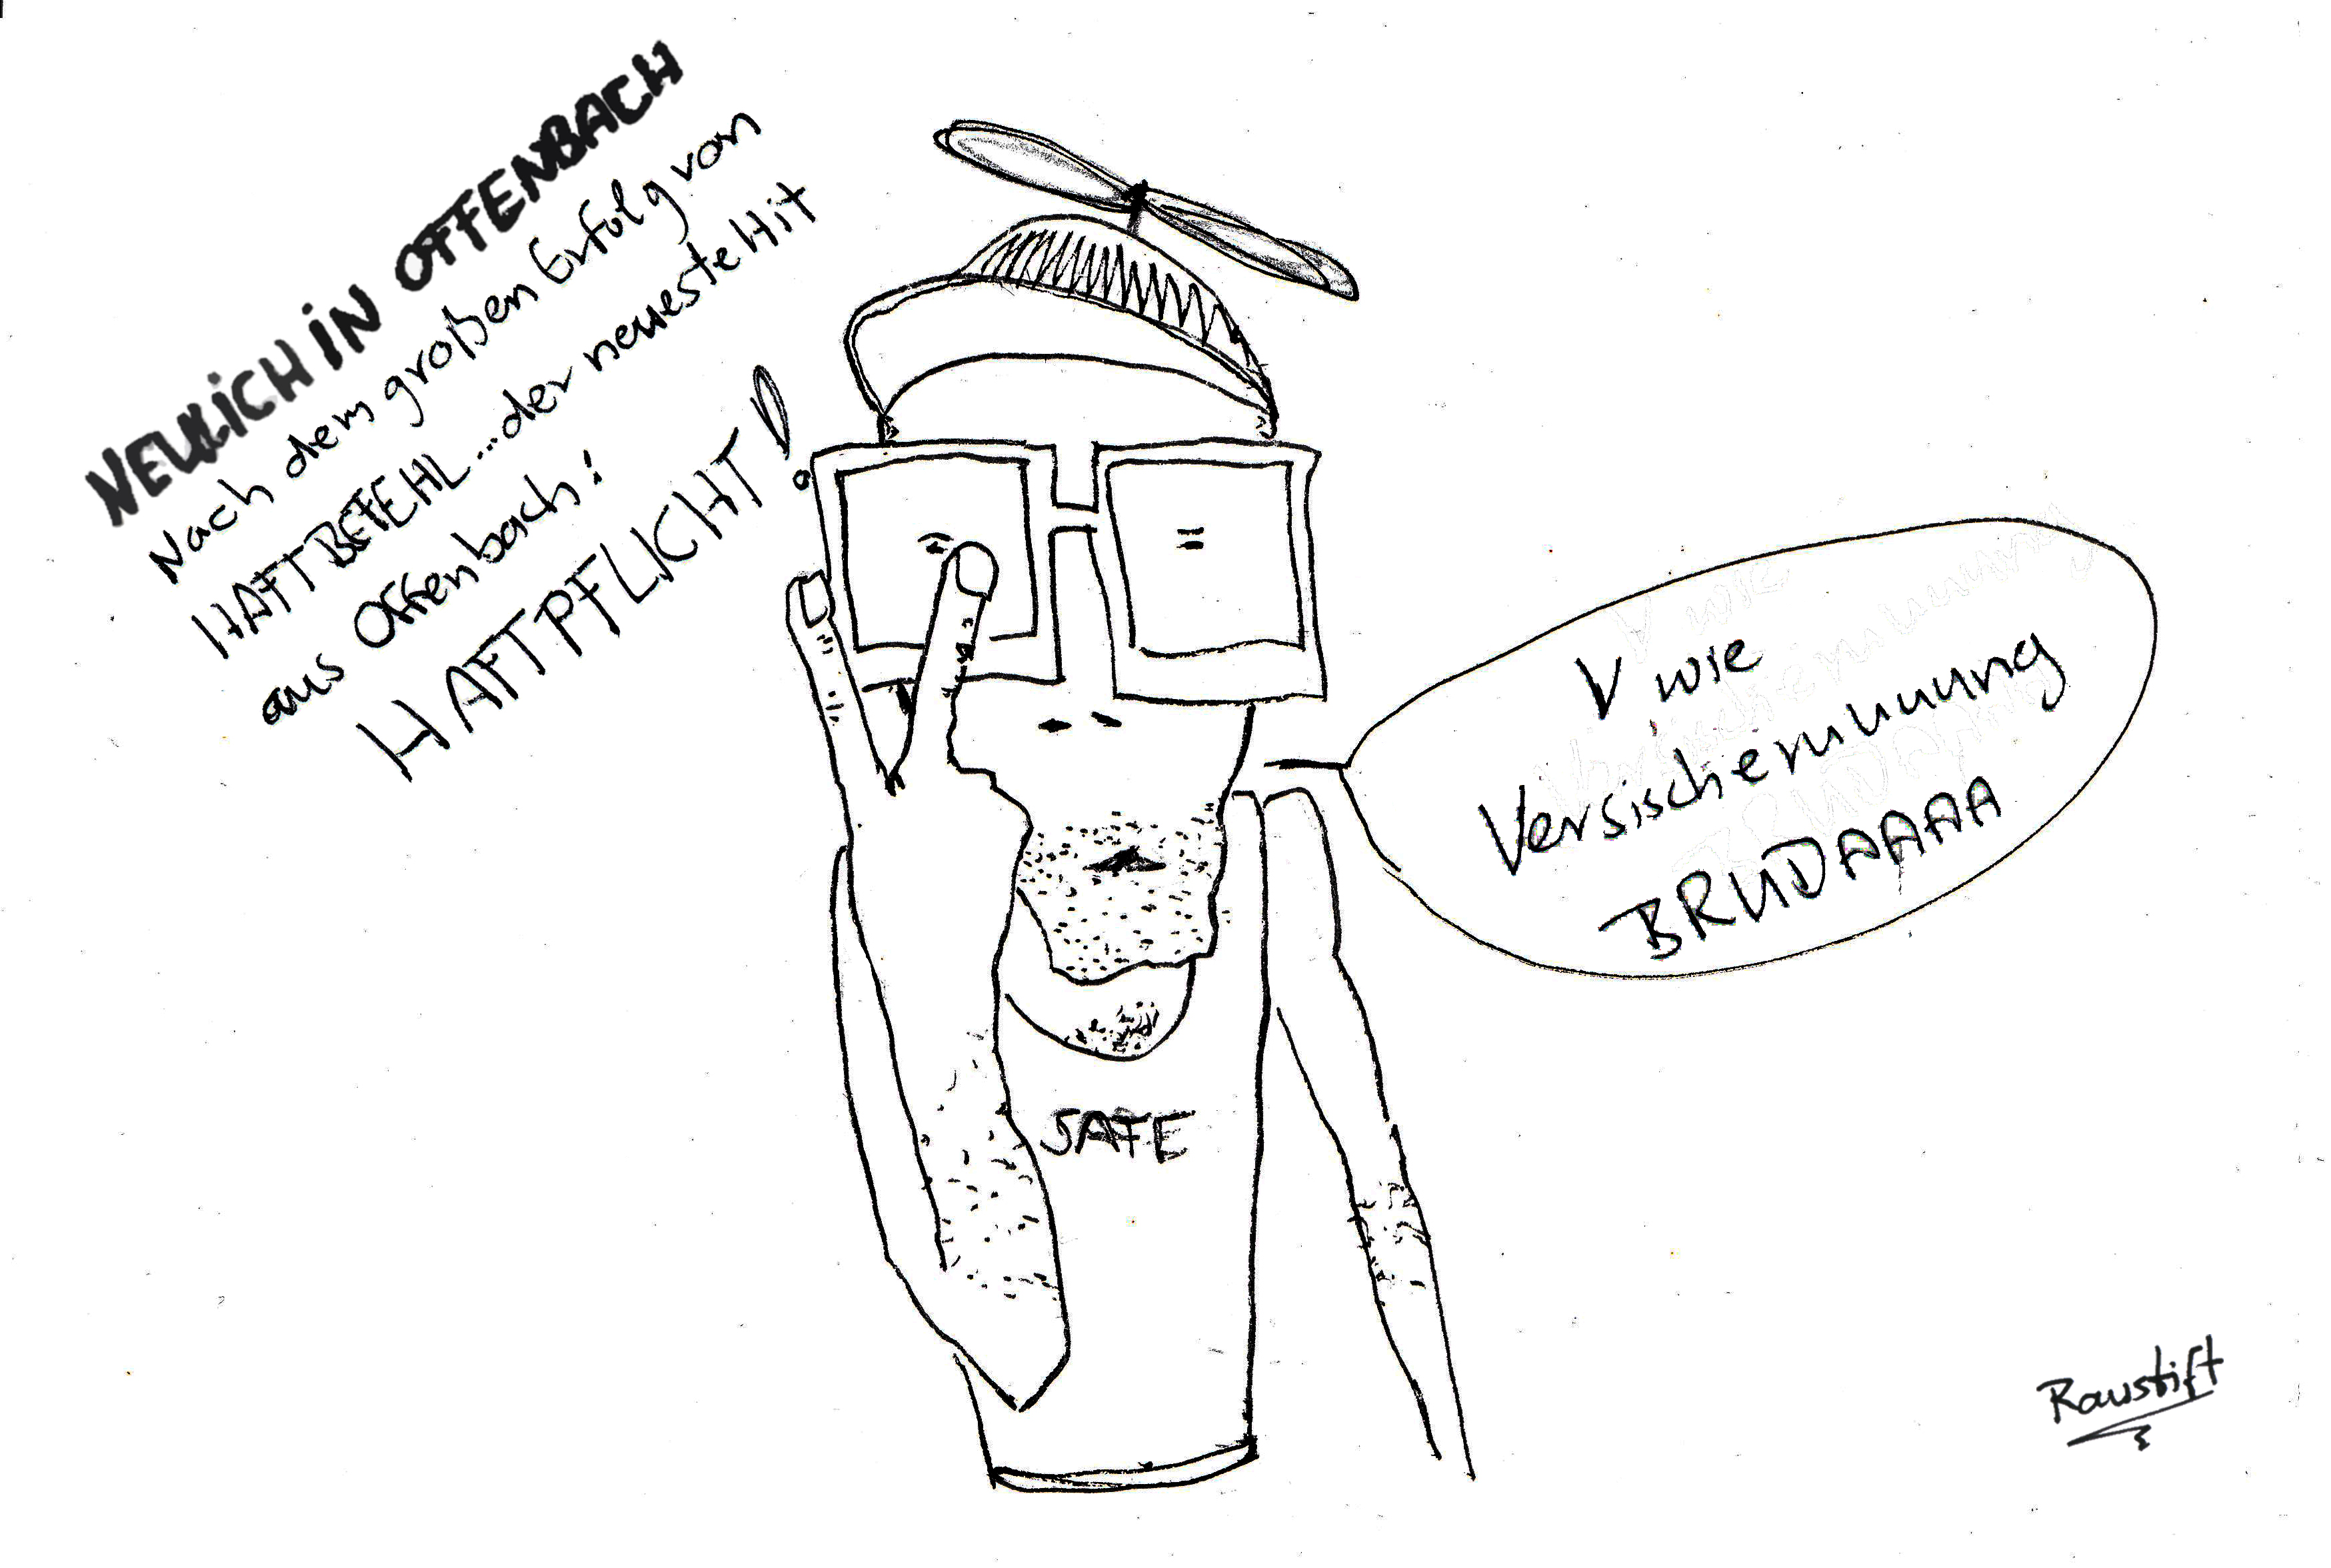 NEULICH IN OFFENBACH
Nach dem großen Erfolg von
HAFTBEFEHL...der neueste Hit
aus Offenbach:
HAFTPFLICHT!
V wie
Versischerunuuung
BRUDAAAA
SAFE
Raustift